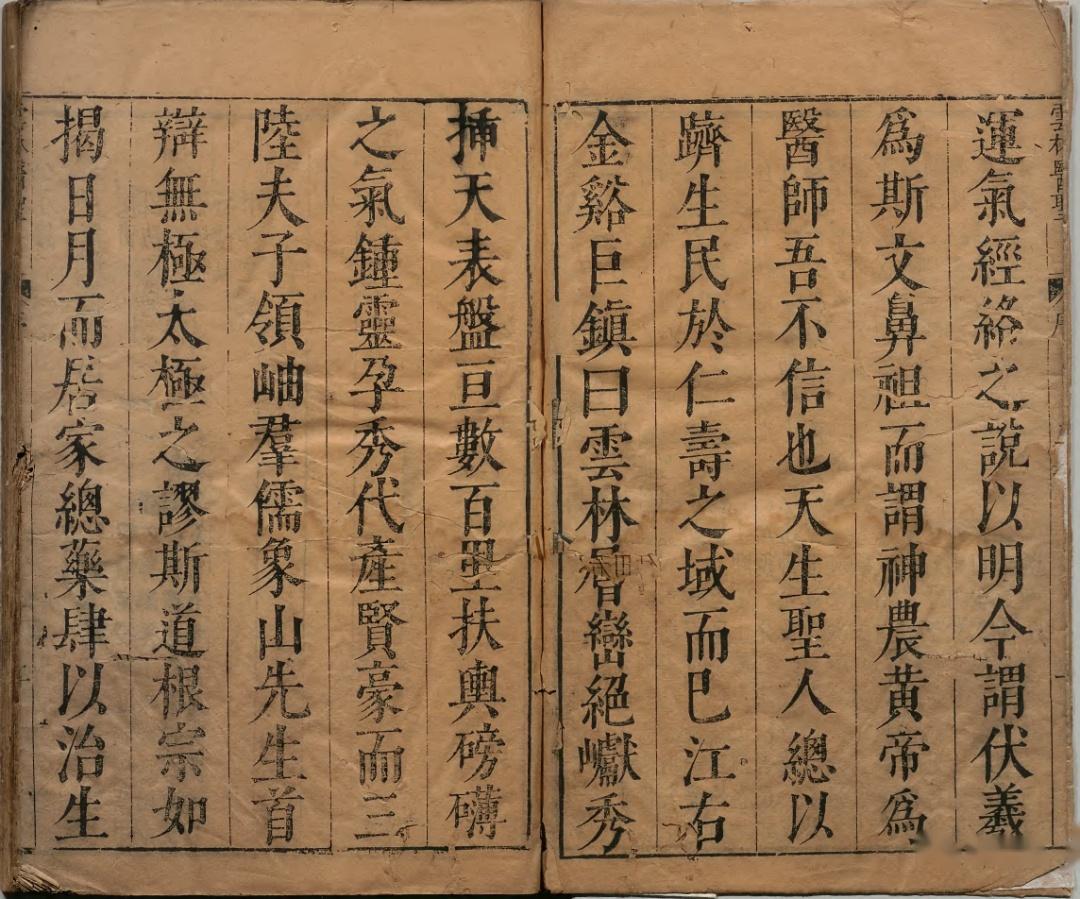 雲林醫聖
序
運氣經絡之說以明今謂伏羲
爲斯文鼻祖而謂神農黃帝爲
醫師吾不信也天生聖人總以
躋生民於仁壽之域而已江右
金谿巨鎮曰雲林層巒絕巘秀
揷天表盤亘數百里扶輿磅礴
之氣鍾靈孕秀代產賢豪而三
陸夫子領岫羣儒象山先生首
辯無極太極之謬斯道根宗如
揭日月而居家總藥肆以治生